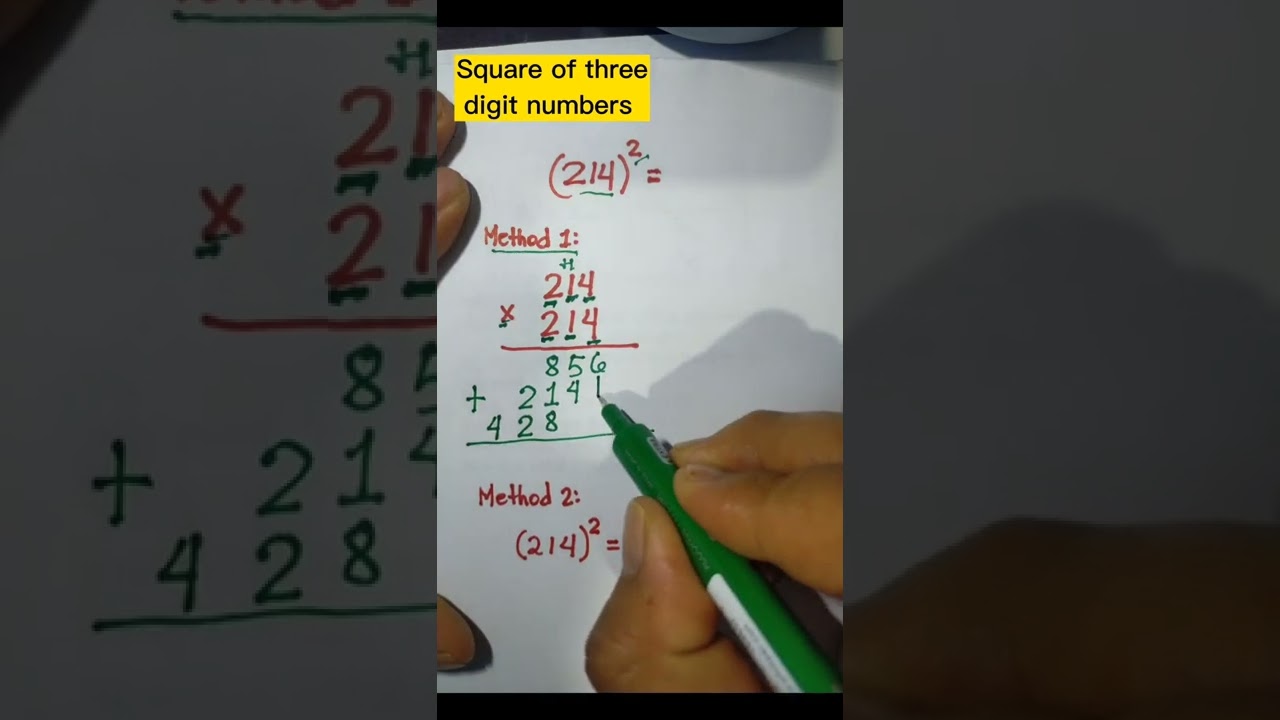 Square of three
digit numbers
(214)² =
Method 1:
+1
214
x 214
856
+ 214
428
Method 2:
(214)² =